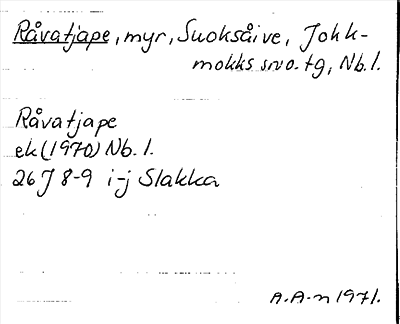 Råvatjape, myr, Suoksåive, Jokk-
mokks svo. tg, Nb. l.
Råvatjape
ek (1970) Nb. l.
26 J 8-9 i-j Slakka
A. A-n 1971.